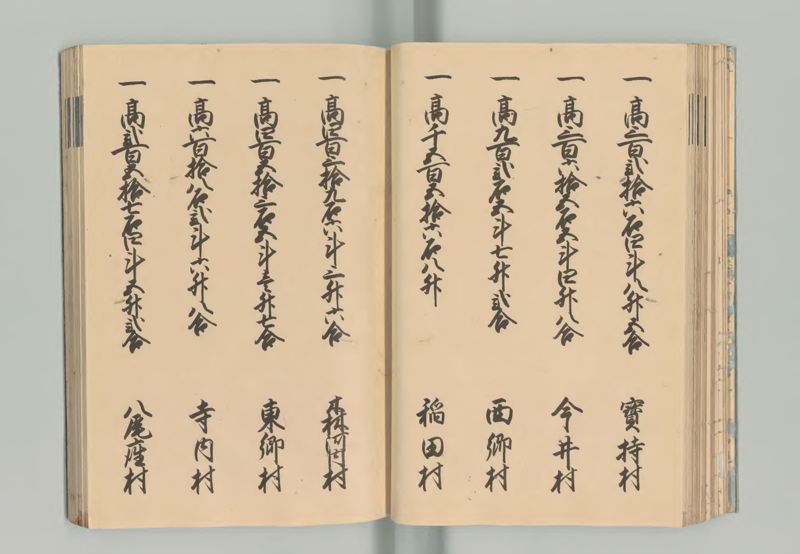 一 高三百弐拾六石四斗八升五合 寶持村
一 高三百六拾五石五斗四升八合 今井村
一 高九百弐石五斗七升弐合 西郷村
一 高千五百五拾六石八升 稲田村
一 高四百三拾九石六斗三升六合 村
一 高四百五拾三石五斗壱升七合 東郷村
一 高六百拾八石弐斗六升八合 寺内村
一 高弐百五拾七石四斗五升弐合 八尾座村